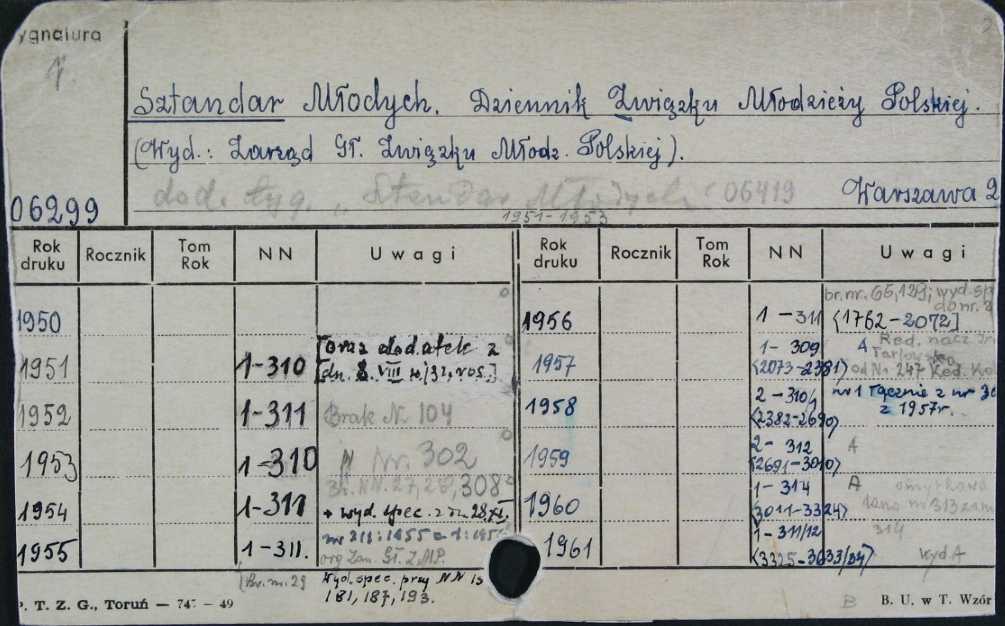 ygnatura
Sztandar Młodych. Dziennik Związku Młodzieży Polskiej.
(Wyd.: Zarząd Gł. Związku Młodz. Polskiej).
06299
dod. tyg. „Sztandar Młodych" 06419
Warszawa 2
1951-1953
Rok druku Rocznik Tom Rok NN Uwagi Rok druku Rocznik Tom Rok NN Uwagi
1950
1951 1-310 [oraz dodatek z
dn. 8. VIII
1952 1-311 Brak Nr 104
1953 1-310 Nr 302
308
1954 1-311 + wyd. spec. z dn. 28.XII.
1955 1-311.
org. Zarz. Gł. Z.M.P.
(Br. nr. 29
Wyd. spec. przy NN
181, 187, 193.
br. nr. 65, 129; wyd. sp
do nr.
1956 1-311 (1762-2072]
1957 1-309 A Red. nacz.
(2073-2381) od Nr 247 Red.
1958 2-310 nr 1 łącznie z nr
(2382-2690) z 1957r.
1959 2-312 A
(2691-3010)
1960 1-314 A omyłkowo
(3011-3324)
314
1961 1-311/12 Wyd A
(3325-3633/34)
P. T. Z. G., Toruń — 747 — 49
B
B. U. w T. Wzór